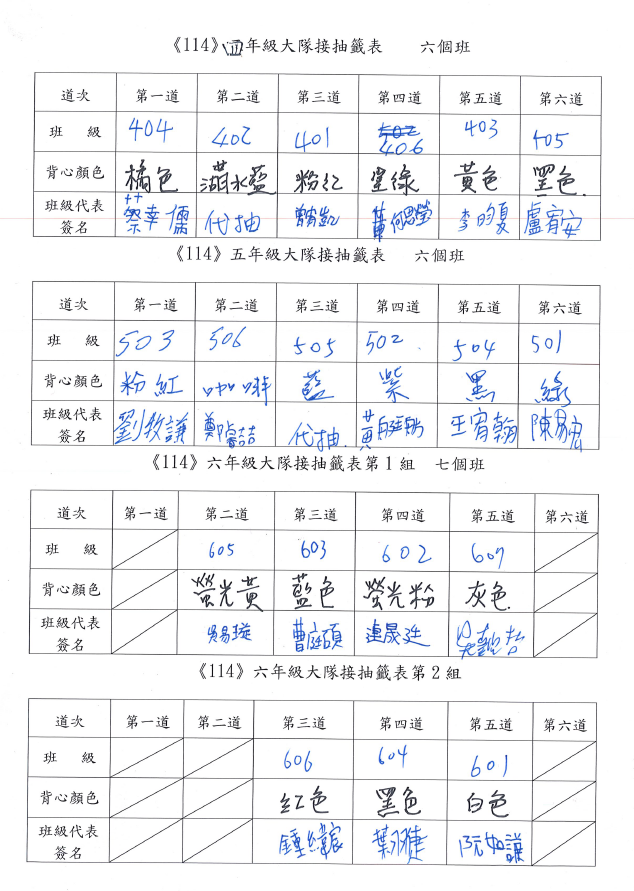 《114》四年級大隊接抽籤表 六個班
道次 第一道 第二道 第三道 第四道 第五道 第六道
班 級 404 402 401 406 403 405
背心顏色 橘色 粉紅 黃色 黑色
班級代表簽名 代抽 盧宥安
《114》五年級大隊接抽籤表 六個班
道次 第一道 第二道 第三道 第四道 第五道 第六道
班 級 503 506 505 502 504 501
背心顏色 粉紅 咖啡 藍 紫 黑 綠
班級代表簽名 代抽 王宥翰
《114》六年級大隊接抽籤表第1組 七個班
道次 第一道 第二道 第三道 第四道 第五道 第六道
班 級 605 603 602 607
背心顏色 螢光黃 藍色 螢光粉 灰色
班級代表簽名 曹庭碩 連晟廷
《114》六年級大隊接抽籤表第2組
道次 第一道 第二道 第三道 第四道 第五道 第六道
班 級 606 604 601
背心顏色 紅色 黑色 白色
班級代表簽名